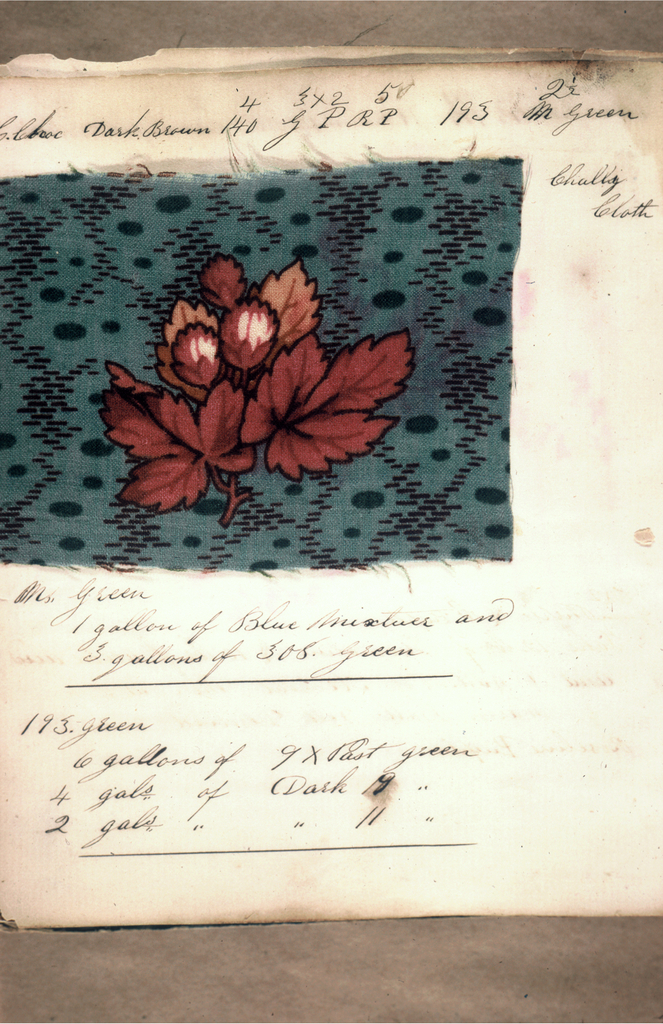 4 3x2 5 2½
Choc Dark Brown 140 G P R P 193 M Green
Chally
Cloth
M. Green
1 gallon of Blue Mixtuer and
3 gallons of 308. Green
193. green
6 gallons of 9 X Past green
4 gals. of Dark 19 "
2 gals. " " 11 "